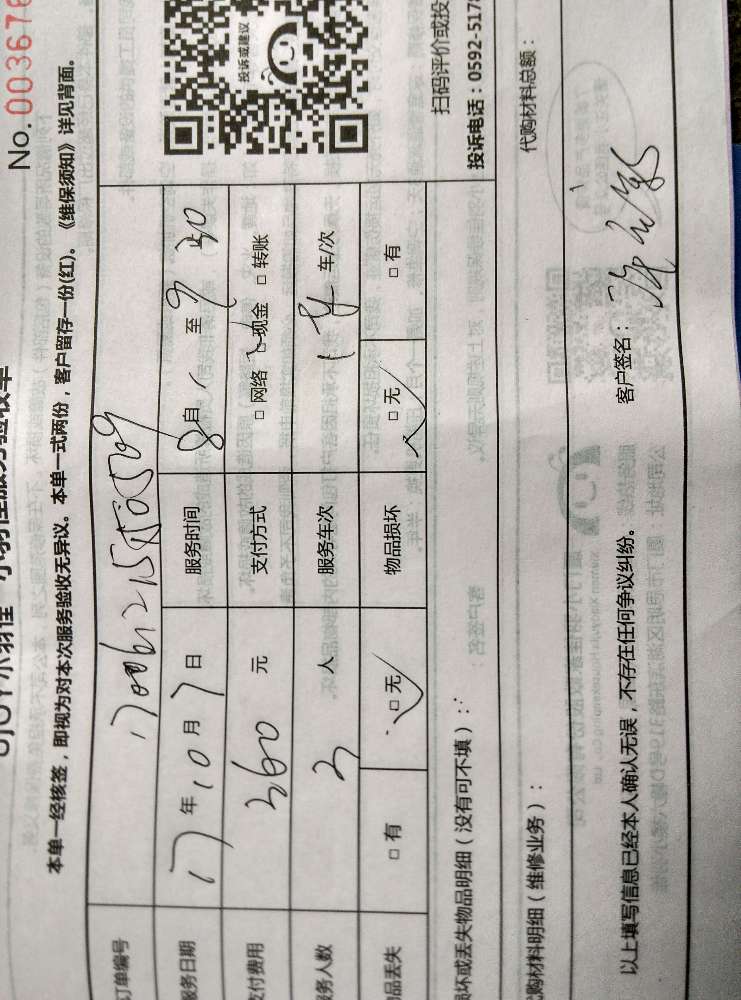 No. 003676
本单一经核签，即视为对本次服务验收无异议。本单一式两份，客户留存一份(红)。《维保须知》详见背面。
订单编号
服务日期 17年10月7日 服务时间 8月1至9 30
支付费用 360 元 支付方式 □ 网络 □ 现金 □ 转账
服务人数 3 人 服务车次 1 车 车/次
物品丢失 □ 有 □ 无 物品损坏 □ 无 □ 有
损坏或丢失物品明细（没有可不填）：
投诉或建议
扫码评价或投
投诉电话：0592-5178
代购材料明细（维修业务）： 代购材料总额：
以上填写信息已经本人确认无误，不存在任何争议纠纷。 客户签名：